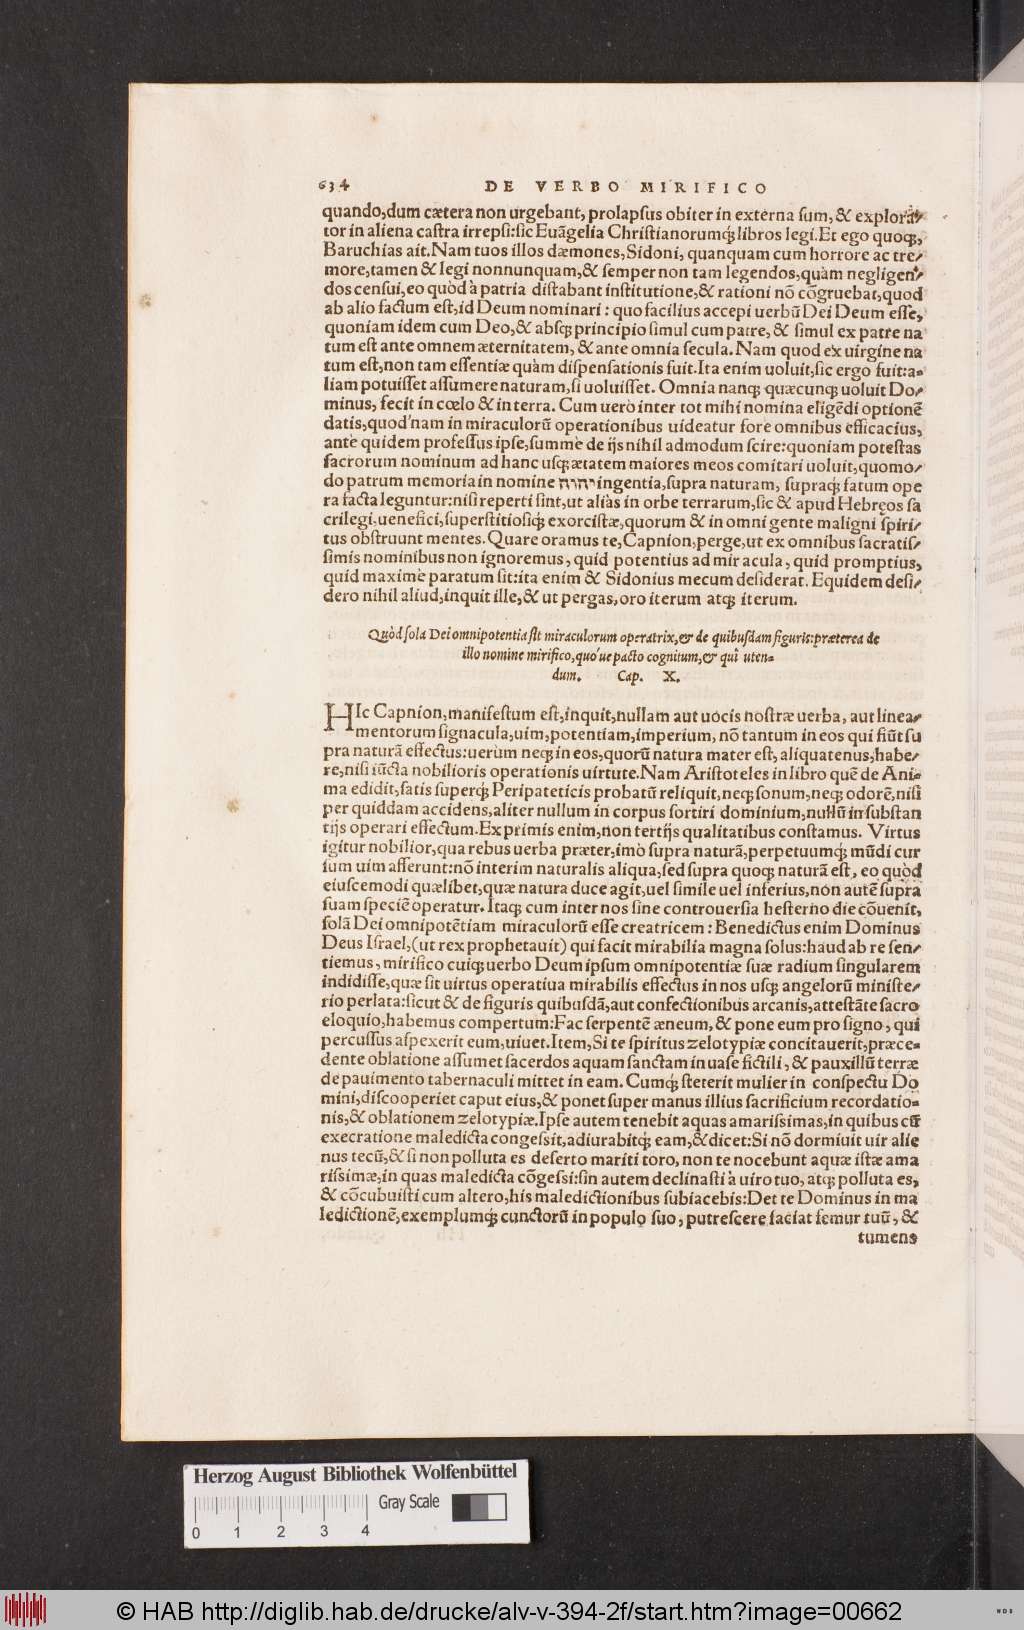 634 DE VERBO MIRIFICO
quando,dum cætera non urgebant, prolapsus obiter in externa sum, & explora⸗
tor in aliena castra irrepsi:sic Euãgelia Christianorumq́; libros legi. Et ego quoq;,
Baruchias ait. Nam tuos illos dæmones, Sidoni, quanquam cum horrore ac tre⸗
more, tamen & legi nonnunquam, & semper non tam legendos, quàm negligen⸗
dos censui, eo quòd à patria distabant institutione, & rationi nõ cõgruebat, quod
ab alio factum est, id Deum nominari: quo facilius accepi uerbũ Dei Deum esse,
quoniam idem cum Deo, & absq; principio simul cum patre, & simul ex patre na
tum est ante omnem æternitatem, & ante omnia secula. Nam quod ex uirgine na
tum est, non tam essentiæ quàm dispensationis fuit. Ita enim uoluit, sic ergo fuit: a⸗
liam potuisset assumere naturam, si uoluisset. Omnia nanq; quæcunq; uoluit Do⸗
minus, fecit in cœlo & in terra. Cum uerò inter tot mihi nomina eligẽdi optionẽ
datis, quod'nam in miraculorũ operationibus uideatur fore omnibus efficacius,
ante quidem professus ipse, summè de ijs nihil admodum scire: quoniam potestas
sacrorum nominum ad hanc usq; ætatem maiores meos comitari uoluit, quomo⸗
do patrum memoria in nomine יהוה ingentia, supra naturam, supraq́; fatum ope
ra facta leguntur: nisi reperti sint, ut aliàs in orbe terrarum, sic & apud Hebręos sa
crilegi, uenefici, superstitiosiq́; exorcistæ, quorum & in omni gente maligni spiri⸗
tus obstruunt mentes. Quare oramus te, Capnion, perge, ut ex omnibus sacratis⸗
simis nominibus non ignoremus, quid potentius ad miracula, quid promptius,
quid maximè paratum sit: ita enim & Sidonius mecum desiderat. Equidem desi⸗
dero nihil aliud, inquit ille, & ut pergas, oro iterum atq; iterum.
Quòd sola Dei omnipotentia sit miraculorum operatrix, & de quibusdam figuris: præterea de
illo nomine mirifico, quo'ue pacto cognitum, & qui uten⸗
dum. Cap. X.
HIc Capnion, manifestum est, inquit, nullam aut uocis nostræ uerba, aut linea⸗
mentorum signacula, uim, potentiam, imperium, nõ tantum in eos qui fiũt su
pra naturã effectus: uerùm neq; in eos, quorũ natura mater est, aliquatenus, habe⸗
re, nisi iũcta nobilioris operationis uirtute. Nam Aristoteles in libro quẽ de Ani⸗
ma edidit, satis superq́; Peripateticis probatũ reliquit, neq; sonum, neq; odorẽ, nisi
per quiddam accidens, aliter nullum in corpus sortiri dominium, nullũ in substan
tijs operari effectum. Ex primis enim, non tertijs qualitatibus constamus. Virtus
igitur nobilior, qua rebus uerba præter, imò supra naturã, perpetuumq́; mũdi cur
sum uim afferunt: nõ interim naturalis aliqua, sed supra quoq; naturã est, eo quòd
eiuscemodi quælibet, quæ natura duce agit, uel simile uel inferius, non autẽ supra
suam speciẽ operatur. Itaq; cum inter nos sine controuersia hesterno die cõuenit,
solã Dei omnipotẽtiam miraculorũ esse creatricem: Benedictus enim Dominus
Deus Israel, (ut rex prophetauit) qui facit mirabilia magna solus: haud ab re sen⸗
tiemus, mirifico cuiq; uerbo Deum ipsum omnipotentiæ suæ radium singularem
indidisse, quæ sit uirtus operatiua mirabilis effectus in nos usq; angelorũ ministe⸗
rio perlata: sicut & de figuris quibusdã, aut confectionibus arcanis, attestãte sacro
eloquio, habemus compertum: Fac serpentẽ æneum, & pone eum pro signo, qui
percussus aspexerit eum, uiuet. Item, Si te spiritus zelotypiæ concitauerit, præce⸗
dente oblatione assumet sacerdos aquam sanctam in uase fictili, & pauxillũ terræ
de pauimento tabernaculi mittet in eam. Cumq́; steterit mulier in conspectu Do
mini, discooperiet caput eius, & ponet super manus illius sacrificium recordatio⸗
nis, & oblationem zelotypiæ. Ipse autem tenebit aquas amarissimas, in quibus cũ
execratione maledicta congessit, adiurabitq́; eam, & dicet: Si nõ dormiuit uir alie
nus tecũ, & si non polluta es deserto mariti toro, non te nocebunt aquæ istæ ama
rissimæ, in quas maledicta cõgessi: sin autem declinasti à uiro tuo, atq; polluta es,
& cõcubuisti cum altero, his maledictionibus subiacebis: Det te Dominus in ma
ledictionẽ, exemplumq́; cunctorũ in populo suo, putrescere faciat femur tuũ, &
tumens
Herzog August Bibliothek Wolfenbüttel
Gray Scale
0 1 2 3 4
© HAB http://diglib.hab.de/drucke/alv-v-394-2f/start.htm?image=00662